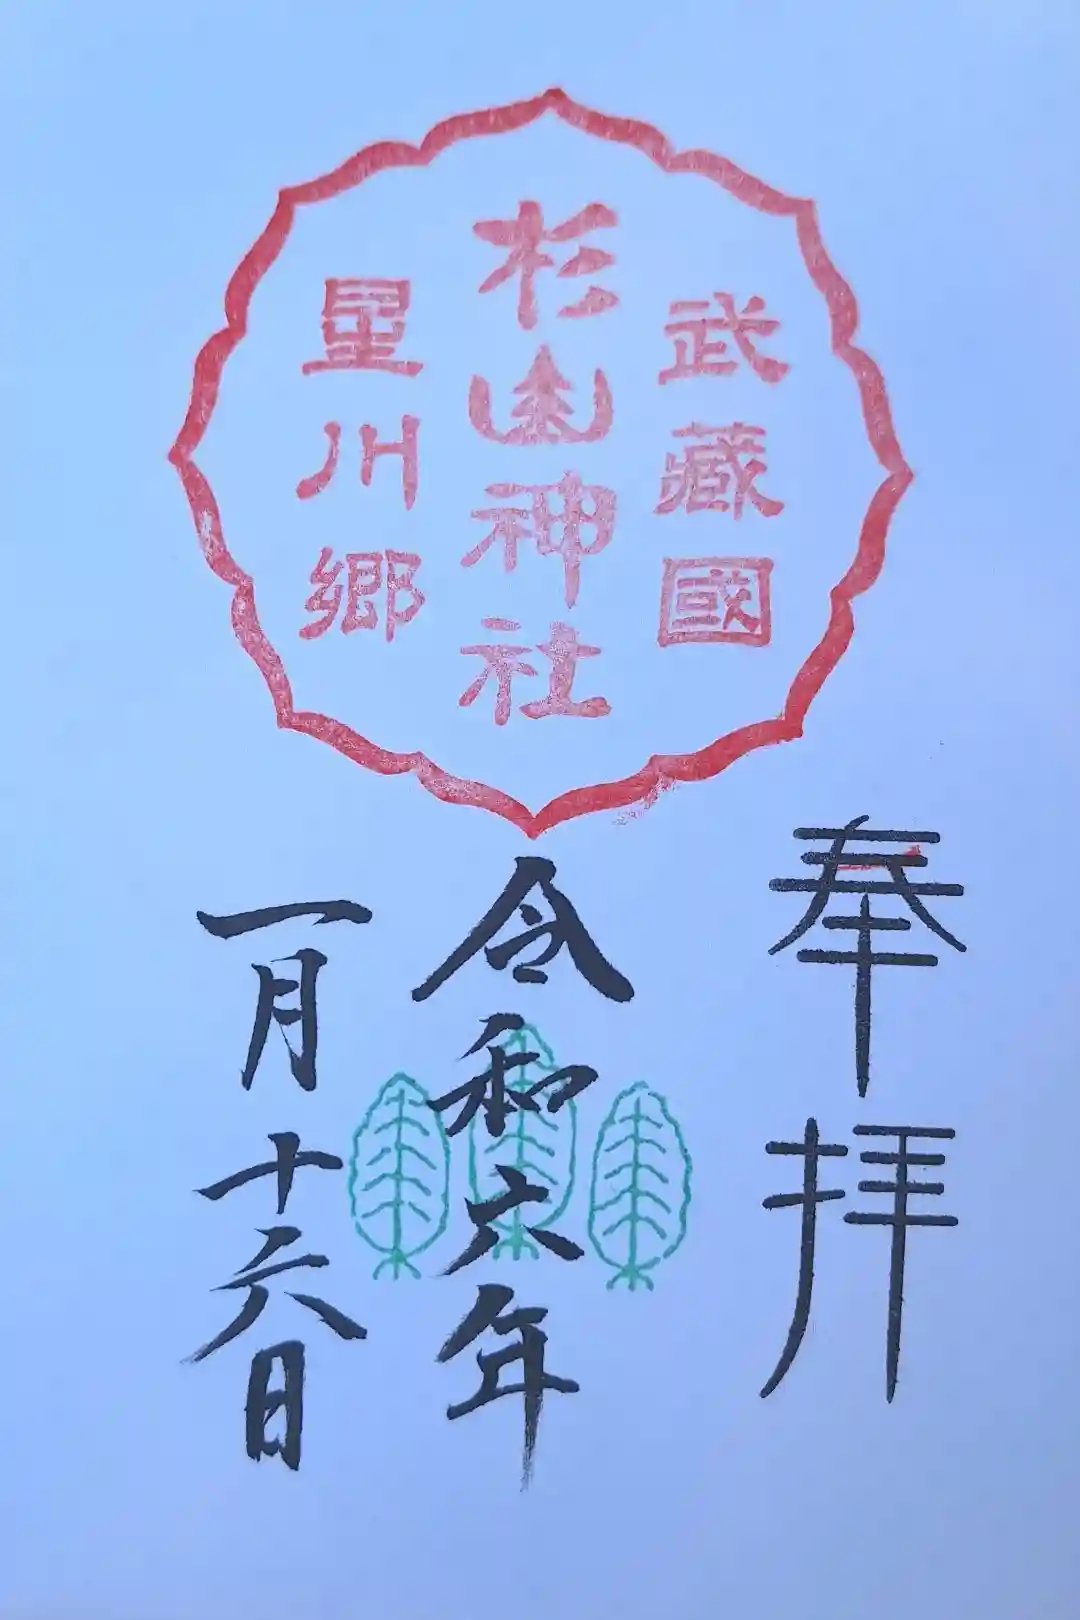 武藏國
杉山神社
星川郷
奉拝
令和六年
一月十六日